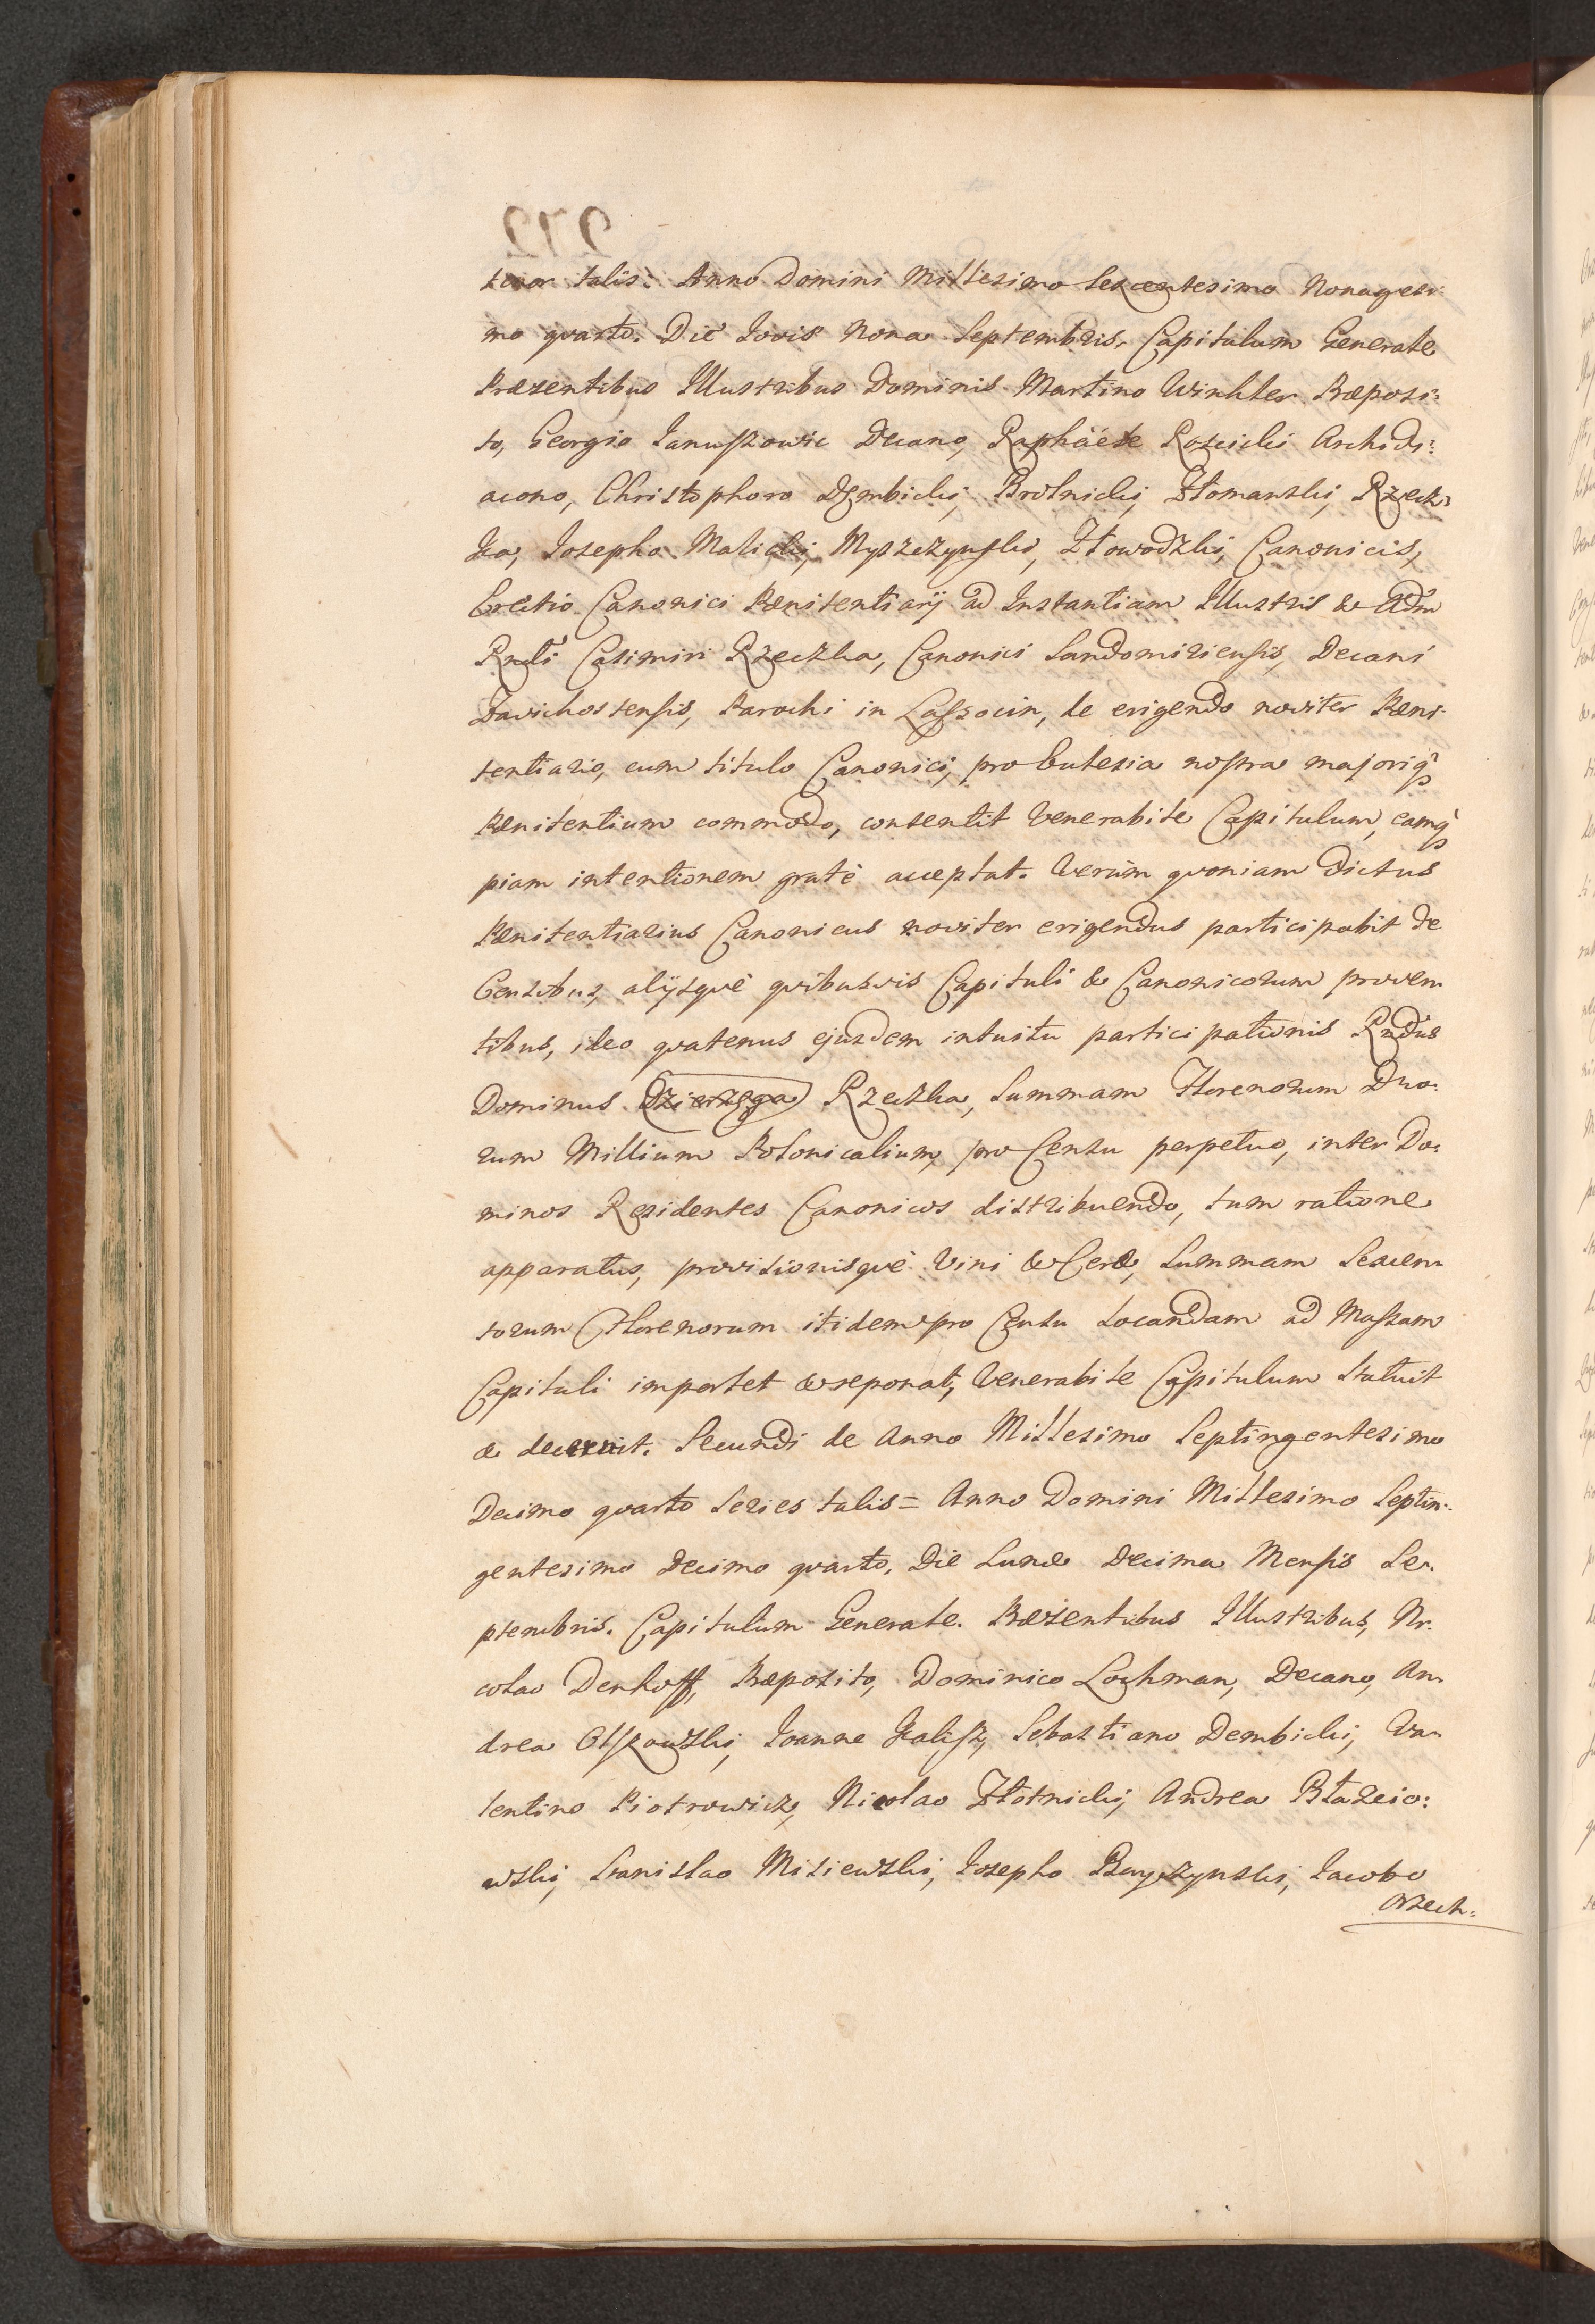 272
tenor talis: Anno Domini Millesimo Sexcentesimo Nonagesi-
mo quarto. Die Jovis Nona Septembris, Capitulum Generale
Præsentibus Illustribus Dominis Martino Winkler Præposi:
to, Georgio Januszowic Decano, Raphäéle Roscicki Archidi:
acono, Christophoro Dembicki, Brolnicki, Złomanski, Rzecz:
ka, Josepho Malicki, Myszczynski, Zławodzki, Canonicis,
Erectio Canonici Pænitentiarij ad Instantiam Illustris & Adm
Rndi Casimiri Rzeczka, Canonici Sandomiriensis, Decani
Zavichostensis, Parochi in Lassocin, de erigendo noviter Pæni-
tentiario, cum titulo Canonici, pro Ecclesia nostra majoriq
Pænitentium commodo, consentit Venerabile Capitulum, eamq
piam intentionem gratè acceptat. Verùm quoniam dictus
Pænitentiarius Canonicus noviter erigendus participabit de
Censibus, alijsquè quibusvis Capituli & Canonicorum proven
tibus, ideo quatenus ejusdem intuitu participationis Rndus
Dominus Dzierzega Rzeczka, Summam Florenorum Duo:
rum Millium Polonicalium, pro Censu perpetuo, inter Do:
minos Residentes Canonicos distribuendo, tum ratione
apparatus, provisionisquè Vini & Ceræ, Summam Sexcen
torum Florenorum itidem pro Censu Locandam ad Massam
Capituli importet & reponat, Venerabile Capitulum Statuit
& decernit. Secundi de Anno Millesimo Septingentesimo
Decimo quarto Series talis = Anno Domini Millesimo Septin-
gentesimo Decimo quarto, Die Lunæ Decima Mensis Se-
ptembris. Capitulum Generale. Præsentibus Illustribus, Ni-
colao Denhoff, Præposito, Dominico Lochman, Decano, An-
drea Olszowski, Joanne Kalisz, Sebastiano Dembicki, Va-
lentino Piotrowicz, Nicolao Złotnicki, Andrea Błażeio:
wski, Stanislao Misiewski, Josepho Buyczynski, Jacobo
Orzech: